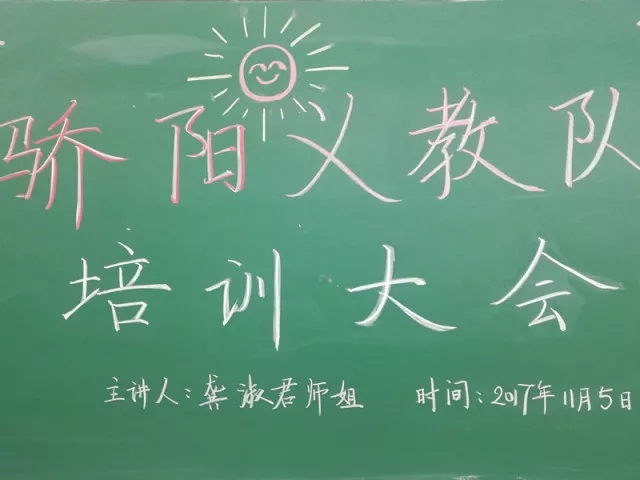 骄阳义教队
培训大会
主讲人：龚淑君师姐 时间：2017年11月5日